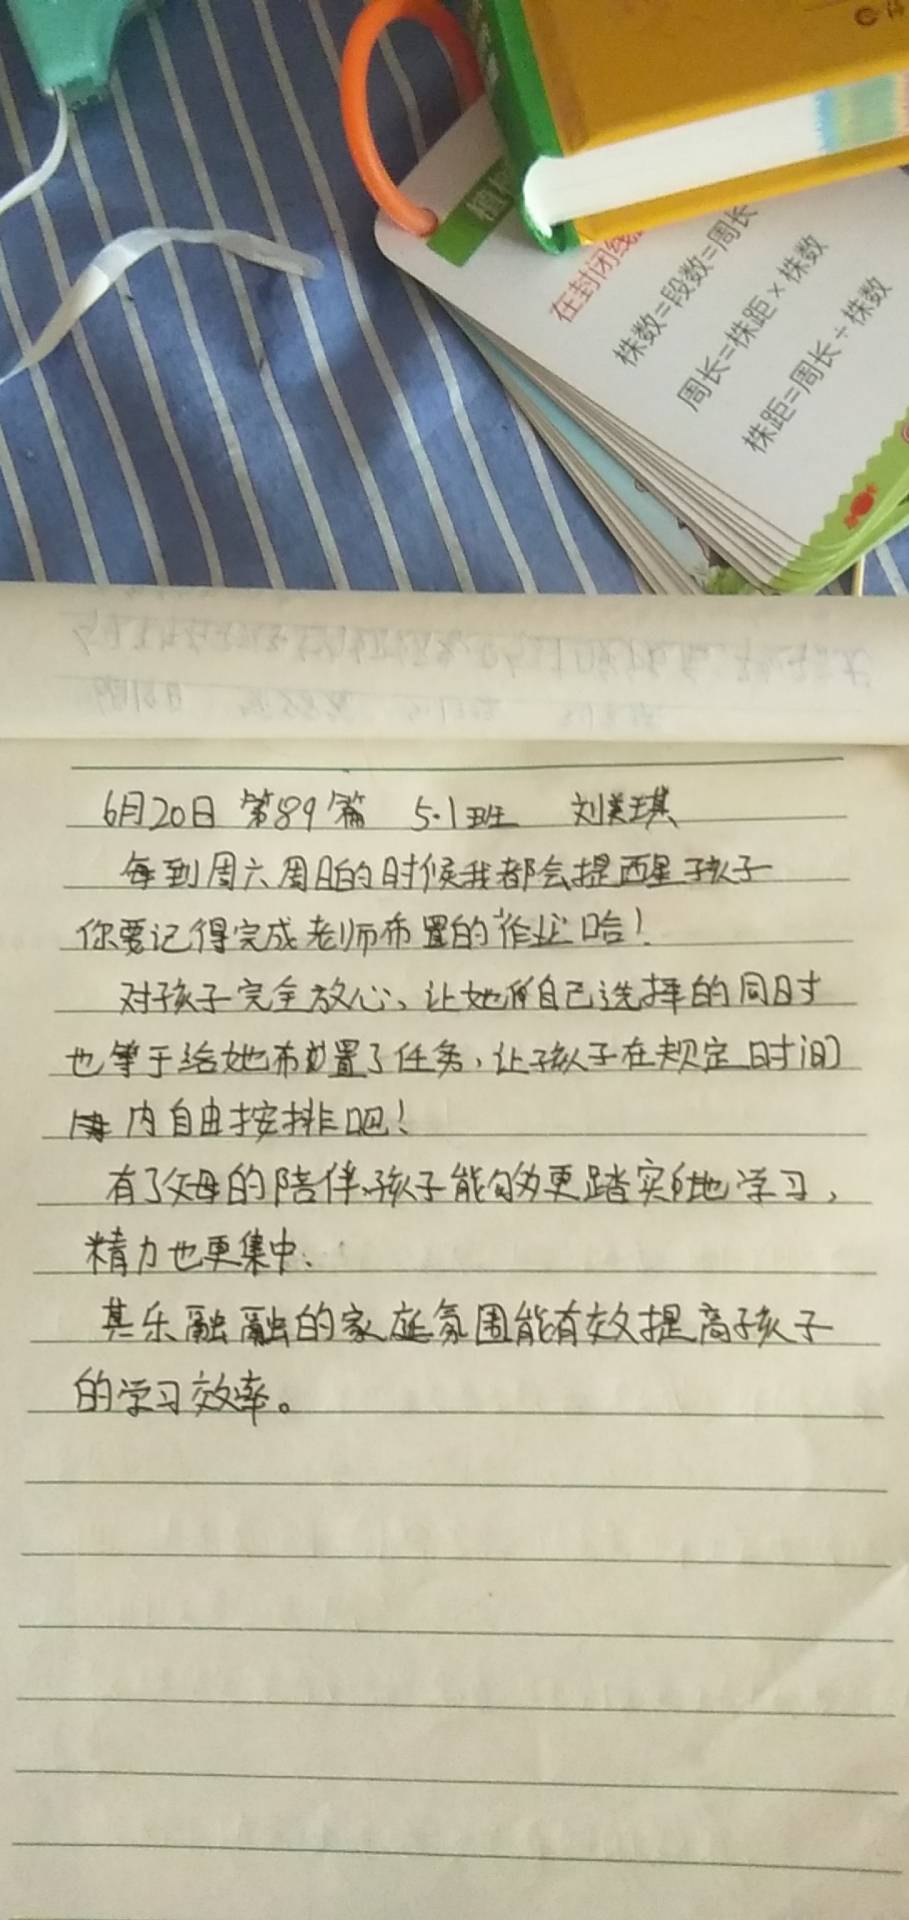 植
在封闭线
株数=段数=周长
周长=株距×株数
株距=周长÷株数
6月20日 第89篇 5.1班 刘美琪
每到周六周日的时候我都会提醒孩子
你要记得完成老师布置的作业哈！
对孩子完全放心、让她自己选择的同时
也等于给她布置了任务，让孩子在规定时间
内自由按排吧！
有了父母的陪伴、孩子能够更踏实地学习，
精力也更集中、
其乐融融的家庭氛围能有效提高孩子
的学习效率。